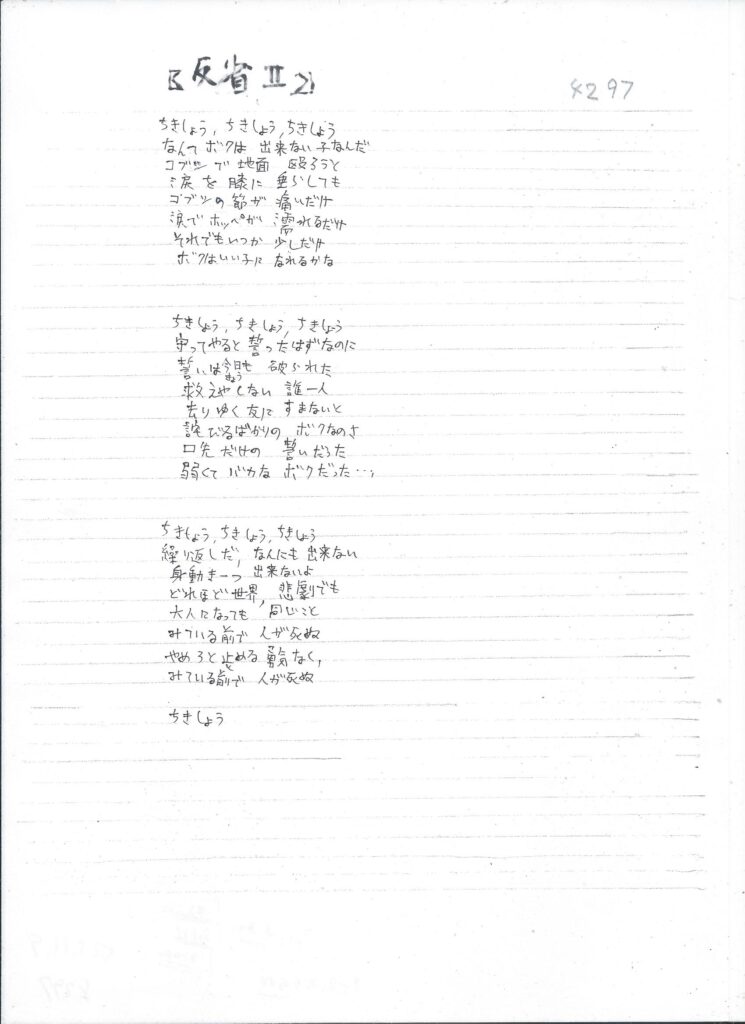 【反省Ⅱ】
8297
ちきしょう,ちきしょう,ちきしょう
なんてボクは 出来ない子なんだ
コブシで 地面 殴ろうと
涙を 膝に 垂らしても
コブシの 節が 痛いだけ
涙で ホッペが 濡れるだけ
それでもいつか 少しだけ
ボクはいい子に なれるかな
ちきしょう,ちきしょう,ちきしょう
守ってやると 誓ったはずなのに
誓いは今日も 破られた
きょう
救えやしない 誰一人
去りゆく友に すまないと
詫びるばかりの ボクなのさ
口先だけの 誓いだった
弱くて バカな ボクだった…,
ちきしょう,ちきしょう,ちきしょう
繰り返しだ, なんにも 出来ない
身動き一つ 出来ないよ
どれほど 世界, 悲劇でも
大人になっても 同じこと
みている前で 人が死ぬ
やめろと 止める 勇気なく,
みている前で 人が死ぬ
ちきしょう